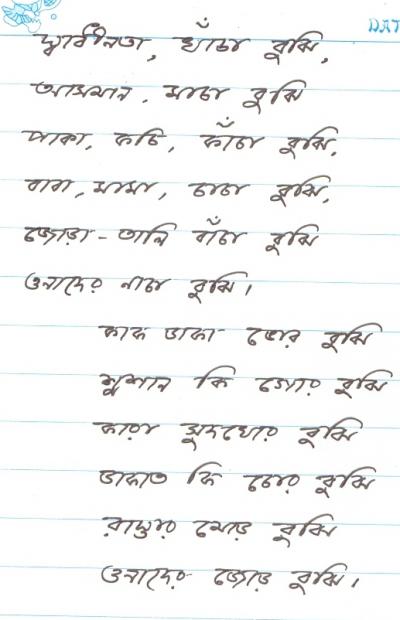 DAT
স্বাধীনতা, খাঁচা বুঝি,
আসমান, মাচা বুঝি
পাকা, কচি, কাঁচা বুঝি,
বাবা, মামা, চাচা বুঝি,
জোড়া-তালি বাঁচা বুঝি
ওনাদের নাচা বুঝি।
কাক ডাকা ভোর বুঝি
শ্মশান কি গোর বুঝি
কারা সুদখোর বুঝি
ডাকাত কি চোর বুঝি
রাস্তার মোড় বুঝি
ওনাদের জোড় বুঝি।